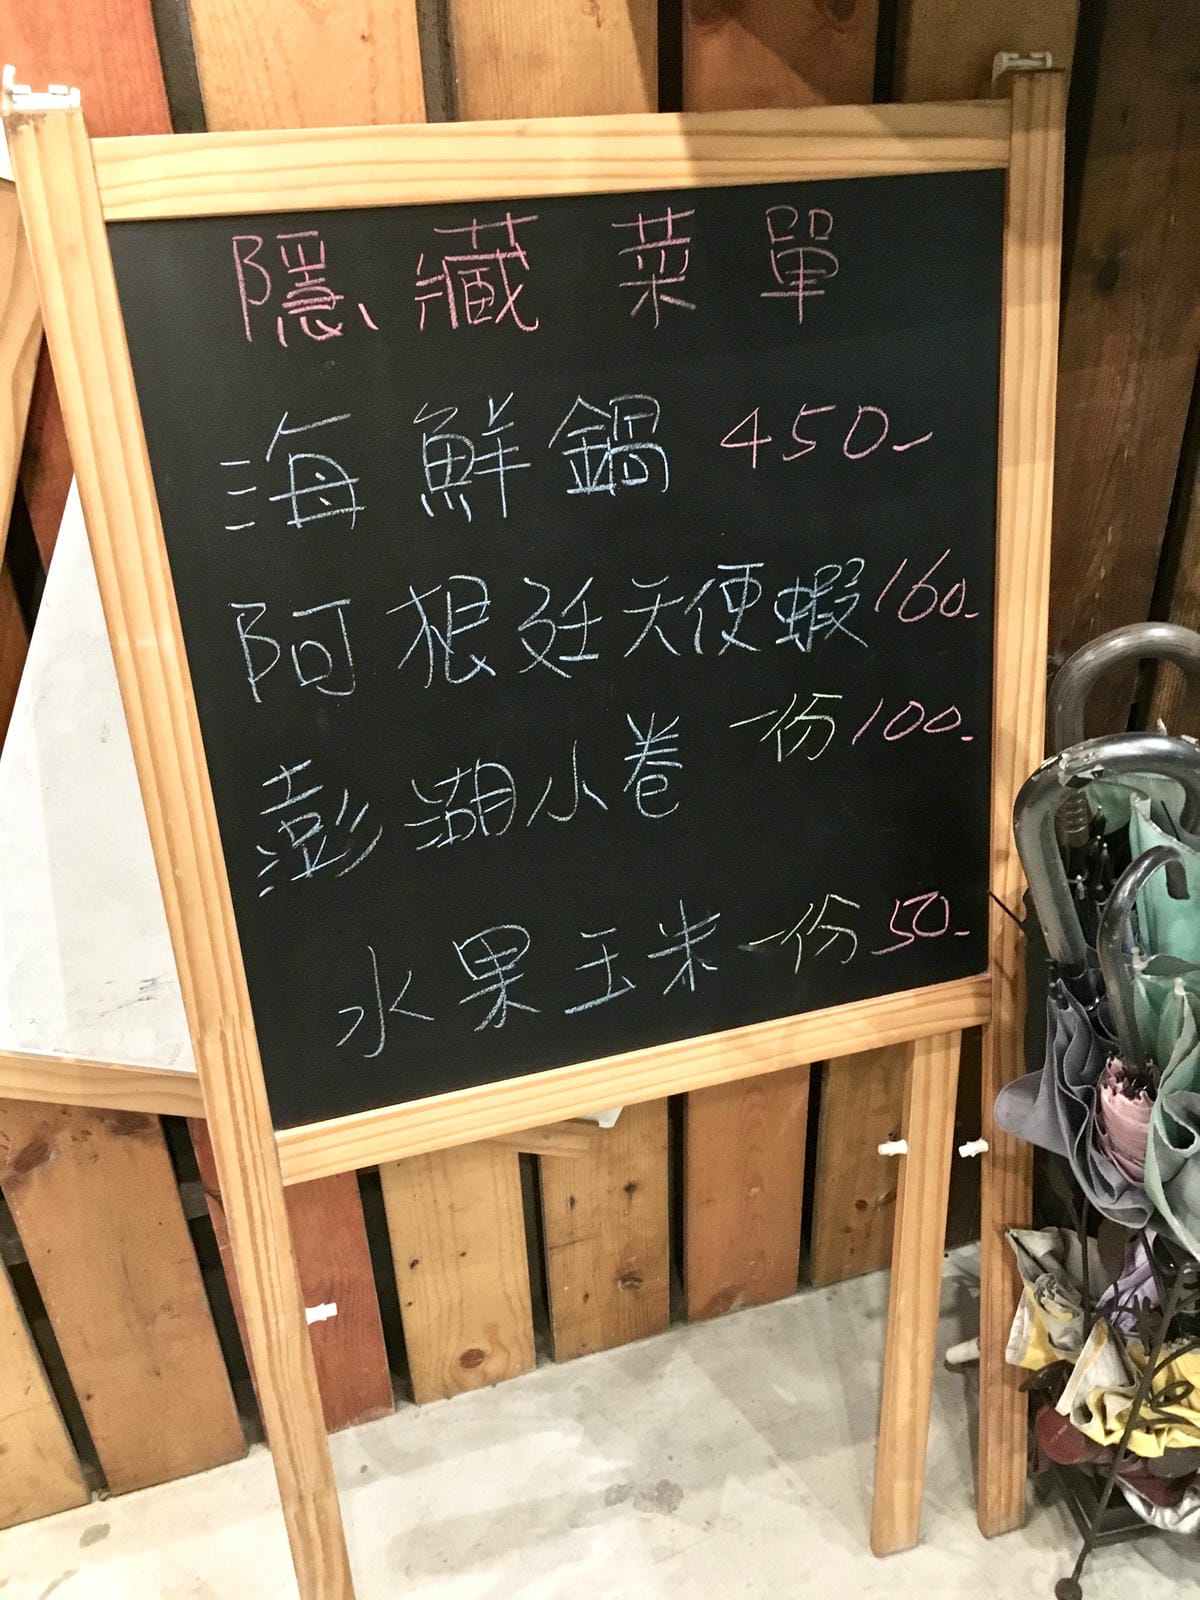 隱藏菜單
海鮮鍋 450-
阿根廷天使蝦 160-
澎湖小卷 一份 100-
水果玉米 一份 50-